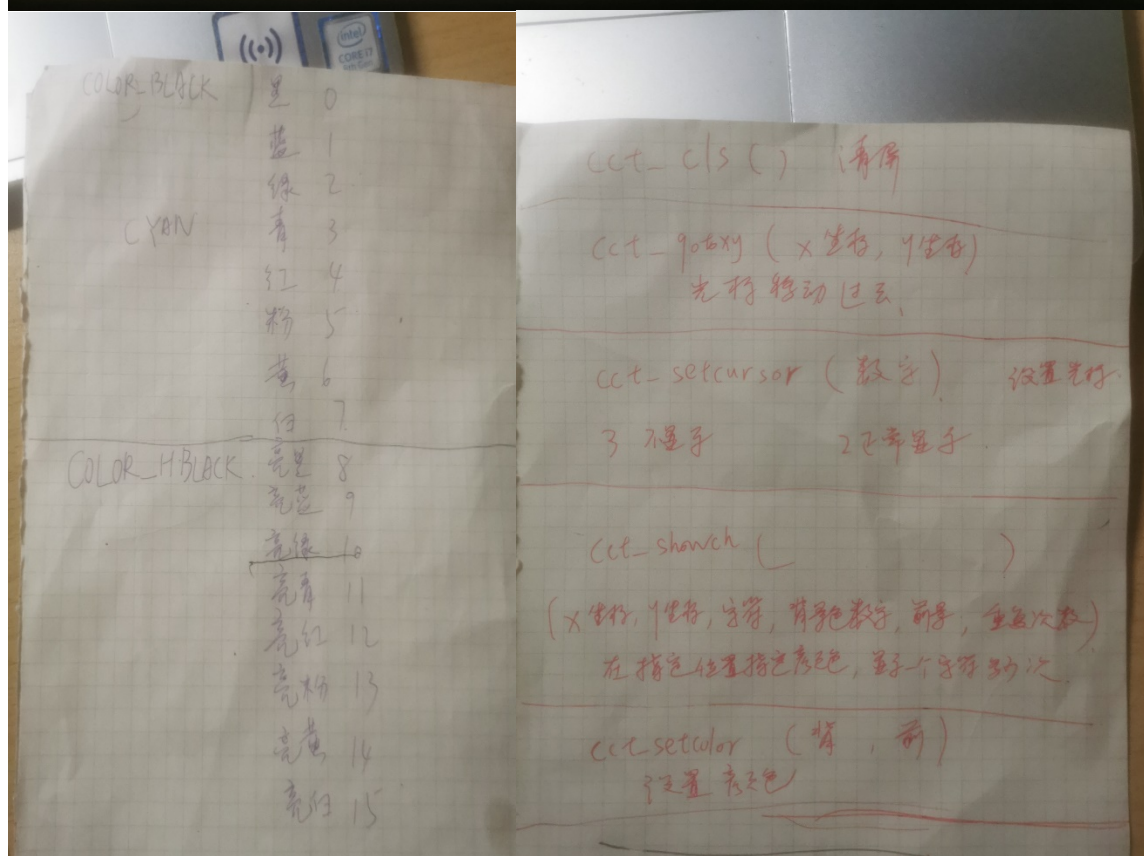 intel
CORE i7
COLOR_BLACK 黑 0
蓝 1
绿 2
CYAN 青 3
红 4
粉 5
黄 6
白 7
COLOR_HBLACK 亮黑 8
亮蓝 9
亮绿 10
亮青 11
亮红 12
亮粉 13
亮黄 14
亮白 15
cct_cls ( ) 清屏
cct_gotoxy ( x坐标, y坐标)
光标移动过去
cct_setcursor (数字) 设置光标
3 不显示 2 正常显示
cct_showch ( )
(x坐标, y坐标, 字符, 背景色数字, 前景, 重复次数)
在指定位置指定颜色, 显示一个字符多少次
cct_setcolor (背, 前)
设置颜色